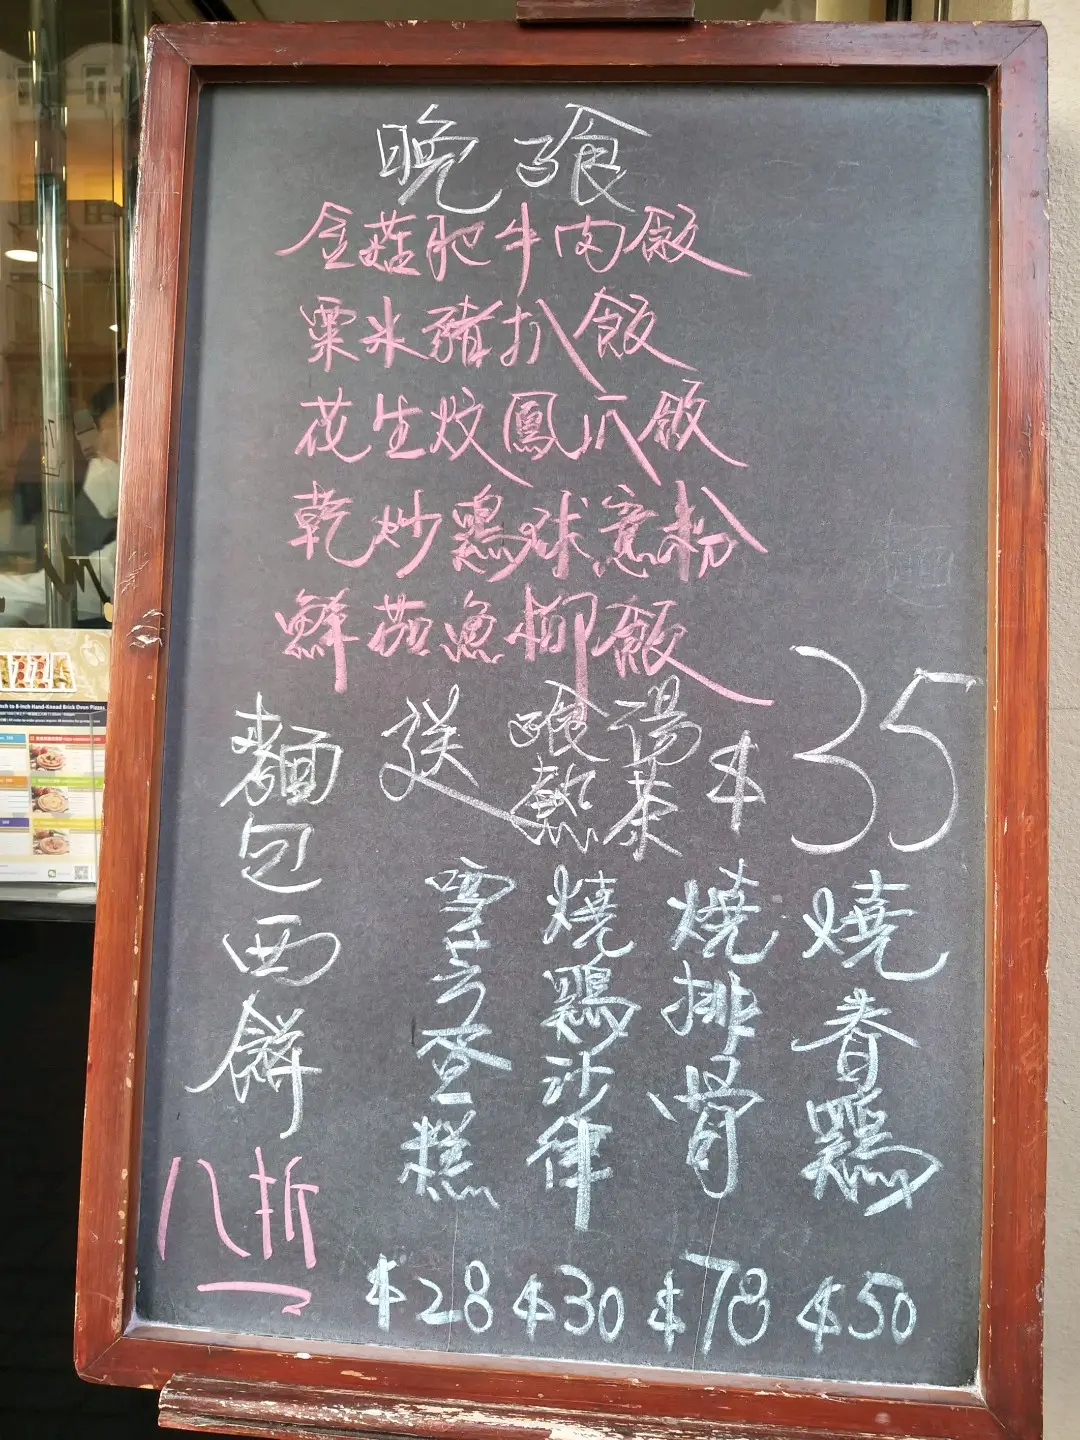 晚飡
金菇肥牛肉飯
粟米豬扒飯
花生炆鳳爪飯
乾炒鷄球意粉
鮮茄魚柳飯
送 晚湯 熱茶 $35
麵包西餅
八折
燒春鷄
$50
燒排骨
$78
燒鷄沙律
$30
雪芳蛋糕
$28